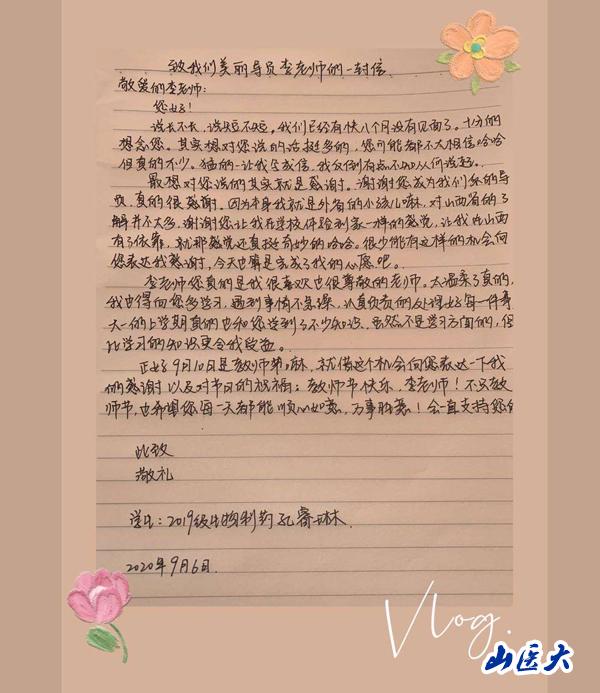 致我们美丽导员李老师的一封信
敬爱的李老师：
您好！
说长不长，说短不短。我们已经有快八个月没有见面了。十分的
想念您。其实想对您说的话挺多的，您可能都不太相信哈哈
但真的不少。猛的一让我写成信，我反倒有点不知从何说起。
最想对您说的其实就是感谢。谢谢您成为我们系的导
员，真的很感谢。因为本身我就是外省的小孩儿嘛，对山西省的了
解并不太多，谢谢您让我在学校体验到家一样的感觉，让我在山西
有了依靠，就那感觉还真挺奇妙的哈哈。很少能有这样的机会向
您表达我感谢，今天也算是完成了我的心愿吧。
李老师您真的是我很喜欢也很尊敬的老师。太温柔了真的，
我也得向您多学习，遇到事情不急躁，认真负责的处理好每一件事
大一的上学期真的也和您学到了不少知识，虽然不是学习方面的，但
比学习的知识更令我受益。
正好9月10日是教师节嘛，就借这个机会向您表达一下我
的感谢以及对节日的祝福：教师节快乐，李老师！不只教
师节，也希望您每一天都能顺心如意，万事胜意！会一直支持您的
此致
敬礼
学生：2019级生物制药 孔睿琳
2020年9月6日.
Vlog.
山医大